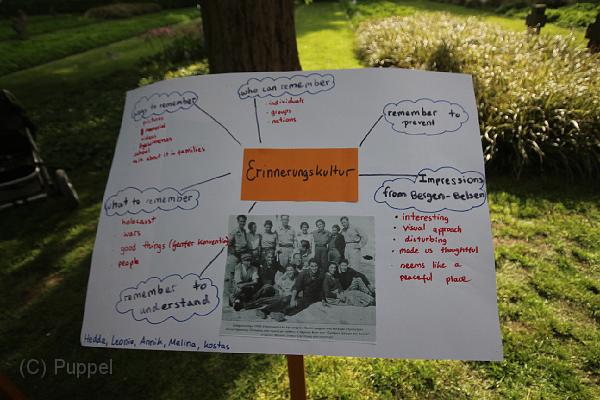 who can remember
individuals
groups
nations
ways to remember
pictures
memorial
videos
school
talk about it in families
remember to
prevent
Erinnerungskultur
Impressions
from Bergen-Belsen
interesting
visual approach
disturbing
made us thoughtful
seems like a
peaceful place
what to remember
holocaust
wars
good things (Genfer Konvention)
people
remember to
understand
Hedda, Leonie, Annik, Melina, Kostas
(C) Puppel